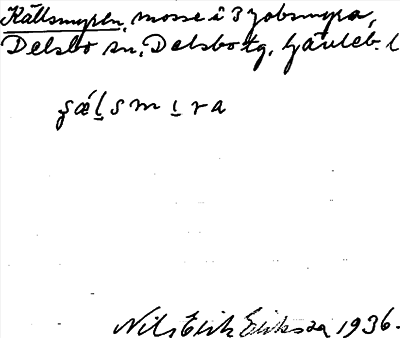 Källsmyren, mosse i 3 Jobsmyra,
Delsbo sn, Delsbo tg, Gävleb. l
ʂǽl̠sm ɩ̠ ra
Nils Erik Eriksson 1936.